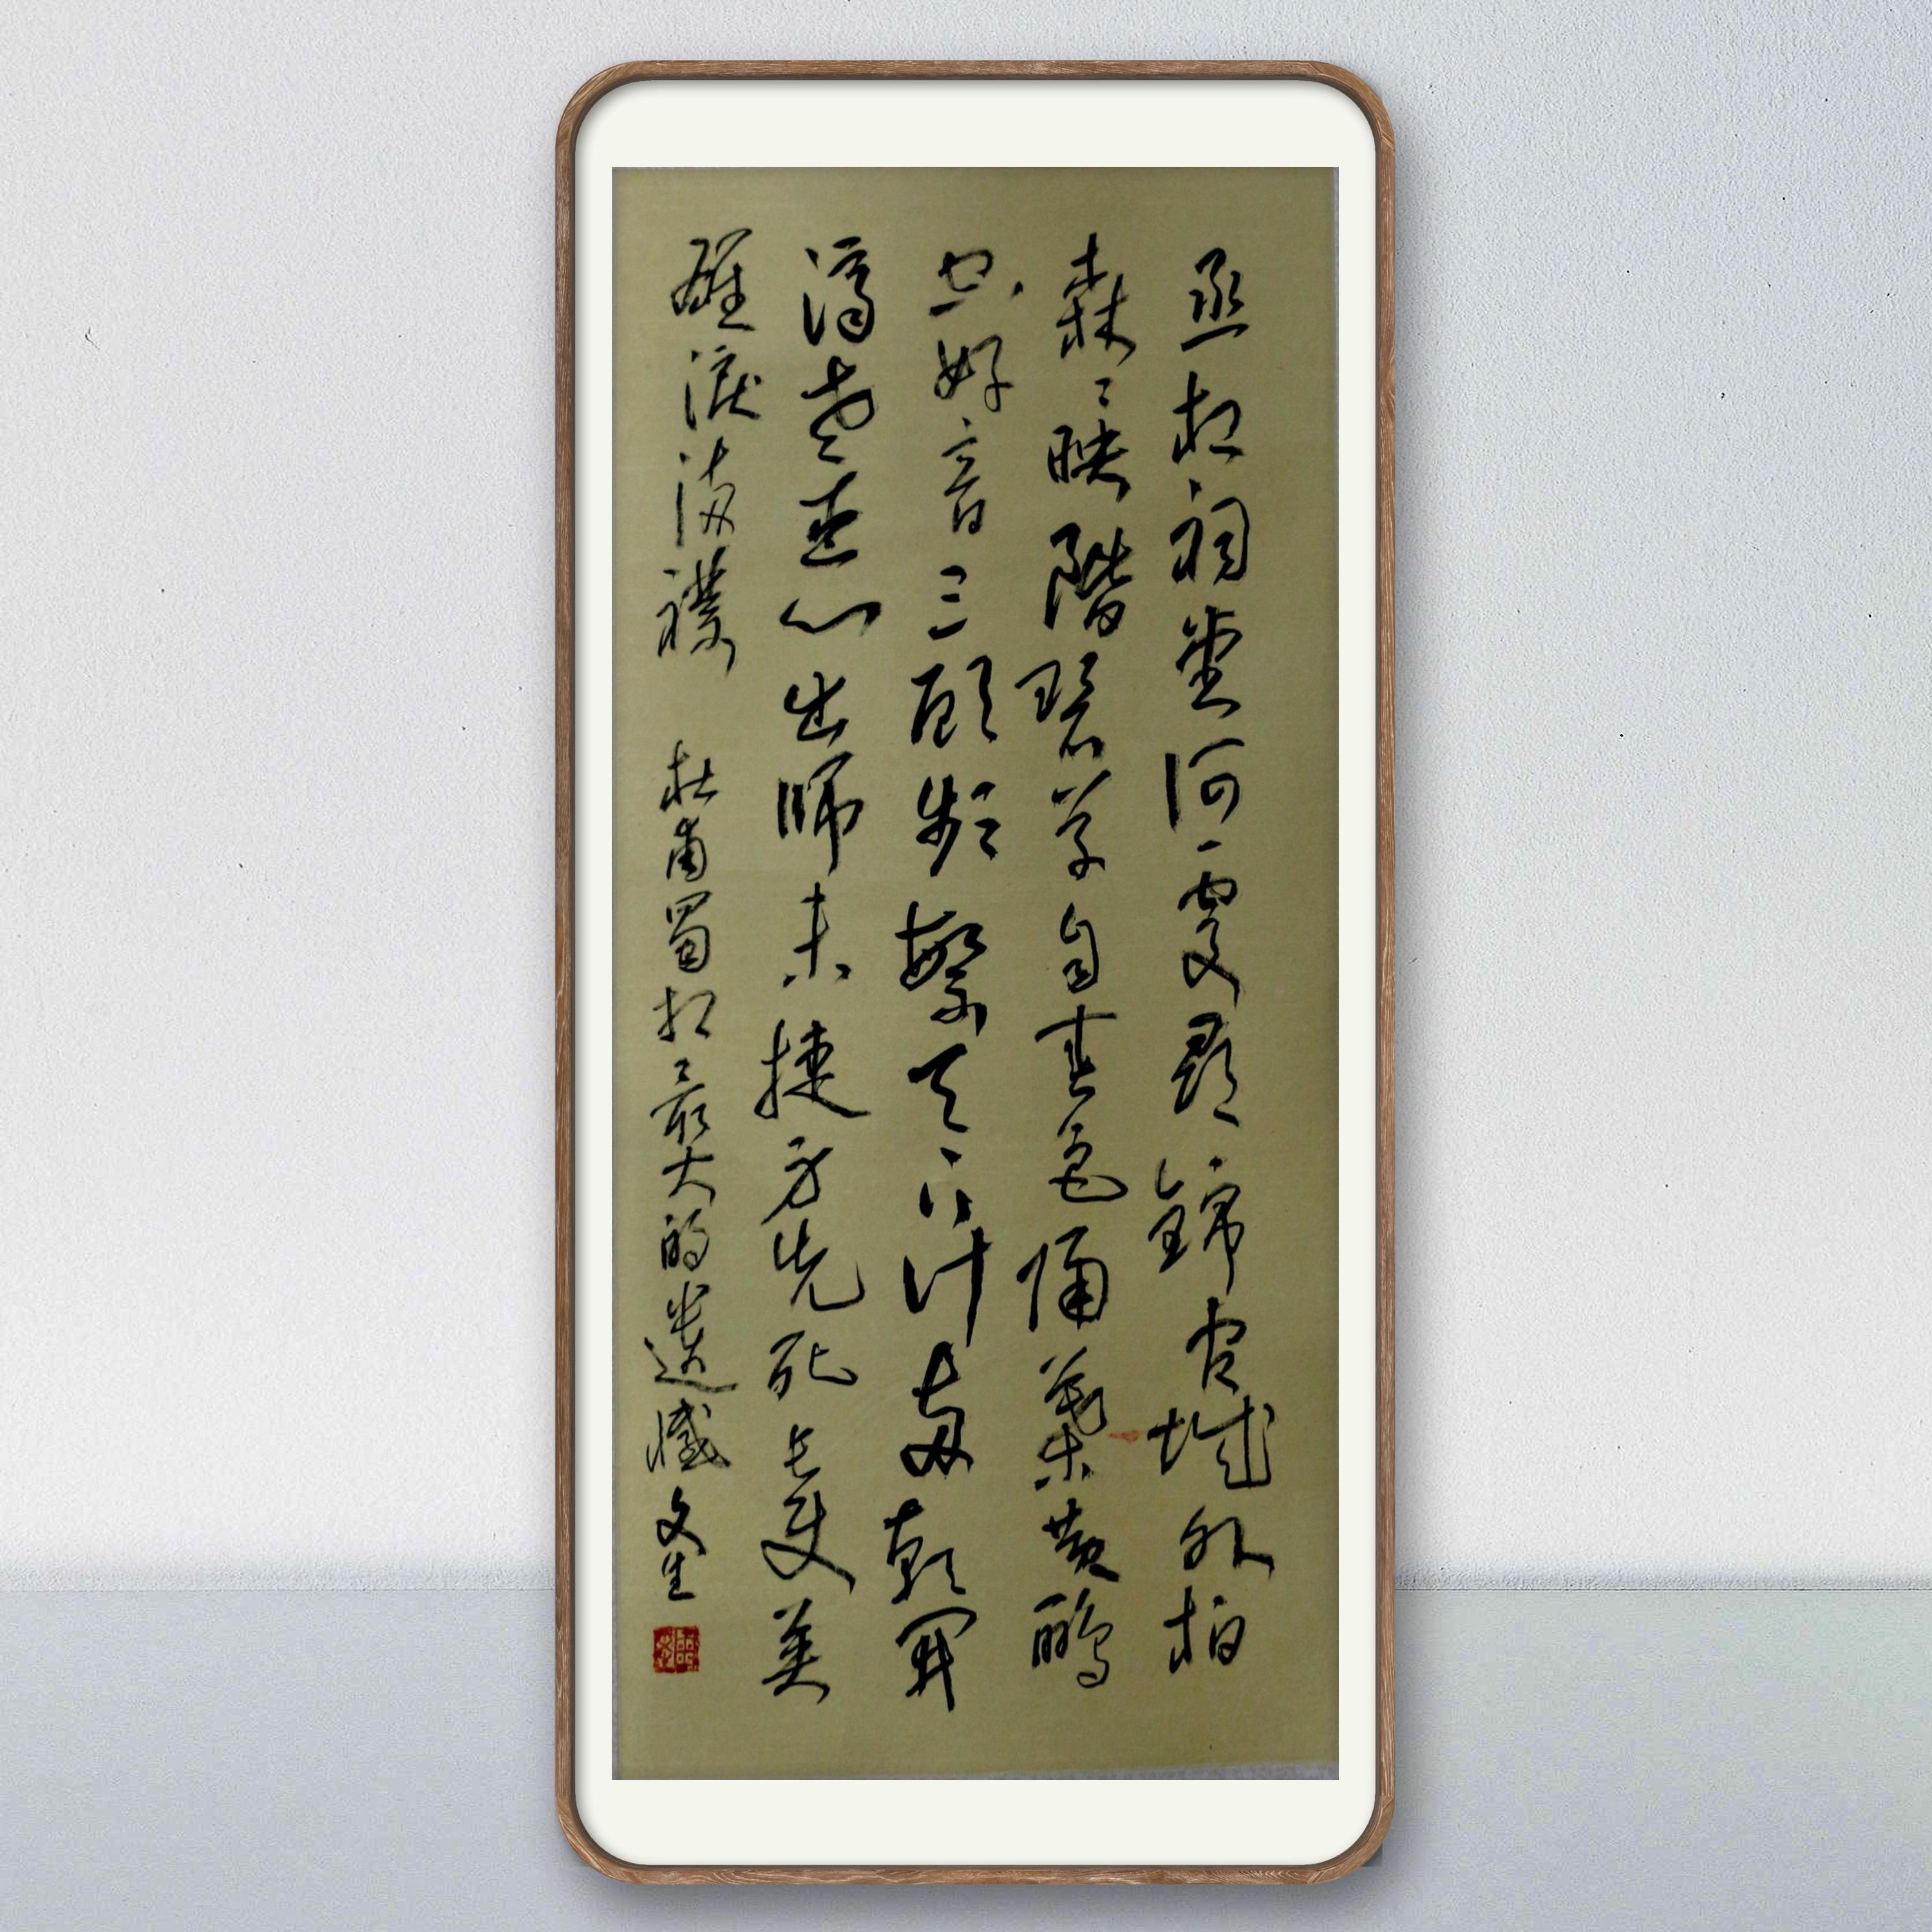 丞相祠堂何處尋錦官城外柏
森々映階碧草自春色隔葉黃鸝
空好音三顧頻繁天下計兩朝開
濟老臣心出師未捷身先死長使英
雄淚滿襟 杜甫蜀相最大的遺憾 文生